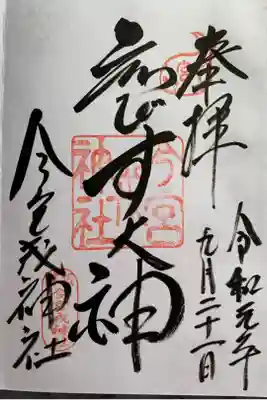 奉拝
令和元年
九月二十一日
ゑびす大神
今宮戎神社
今宮
神社